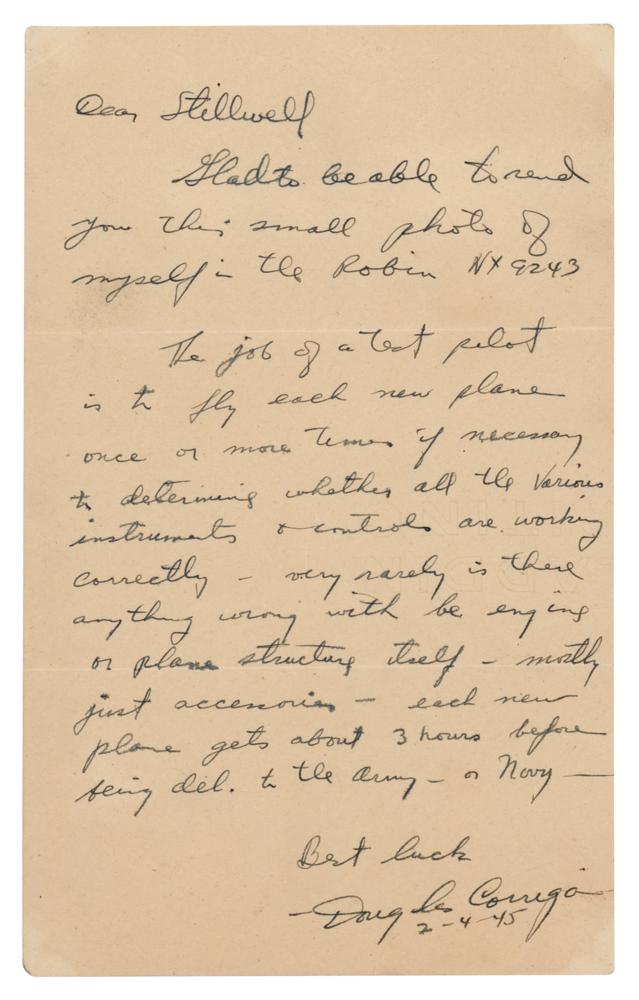 Dear Stillwell
Glad to be able to send
you this small photo of
myself in the Robin NX 9243
The job of a test pilot
is to fly each new plane
once or more times if necessary
to determine whether all the various
instruments & controls are working
correctly – very rarely is there
anything wrong with be engine
or plane structure itself – mostly
just accessories – each new
plane gets about 3 hours before
being del. to the Army – or Navy —
Best luck
– Douglas Corrigan
2-4-45